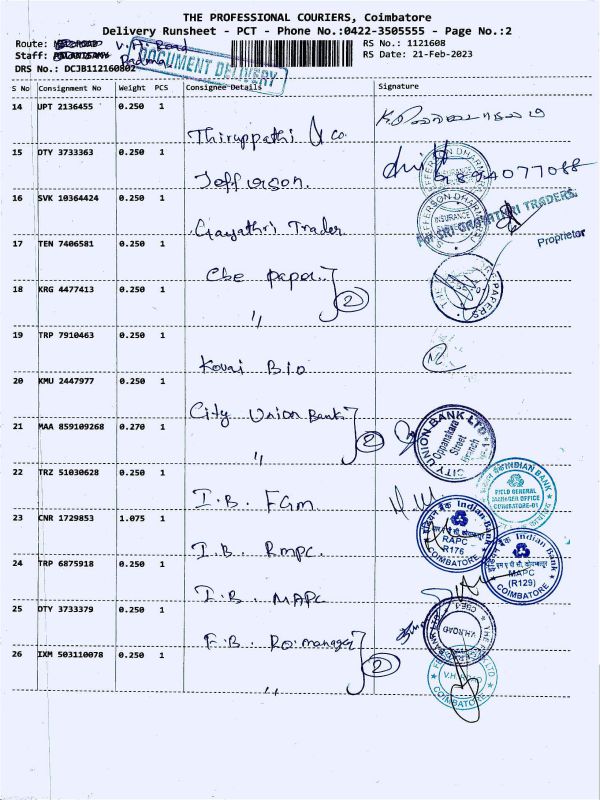 THE PROFESSIONAL COURIERS, Coimbatore
Delivery Runsheet - PCT - Phone No.:0422-3505555 - Page No.:2
Route: V.H. Road
RS No.: 1121608
Staff: Padma
RS Date: 21-Feb-2023
DRS No.: DCJB112160802
DOCUMENT DELIVERY
S No Consignment No Weight PCS Consignee Details Signature
14 UPT 2136455 0.250 1
Thiruppathi & Co.
15 OTY 3733363 0.250 1
Jefferson.
9894077088
16 SVK 10364424 0.250 1
JEFFERSON DHARMAR
INSURANCE
Gayathri Trader
For SRI GAYATHRI TRADERS
Proprietor
17 TEN 7406581 0.250 1
Cbe paper
18 KRG 4477413 0.250 1
2
"
19 TRP 7910463 0.250 1
Kovai Bio
20 KMU 2447977 0.250 1
City Union Bank
21 MAA 859109268 0.270 1
2
"
CITY UNION BANK LTD
Oppanakara
Street
Branch
22 TRZ 51030628 0.250 1
I.B. FGM
INDIAN BANK
FIELD GENERAL
MANAGER OFFICE
COIMBATORE-01
23 CNR 1729853 1.075 1
I.B. RMPC.
इंडियन बैंक Indian Bank
RAPC
R176
COIMBATORE
24 TRP 6875918 0.250 1
I.B. MAPC
इंडियन बैंक Indian Bank
MAPC
(R129)
COIMBATORE
25 OTY 3733379 0.250 1
F.B. Ro manager
V.H.ROAD
26 IXM 503110078 0.250 1
2
"
COIMBATORE